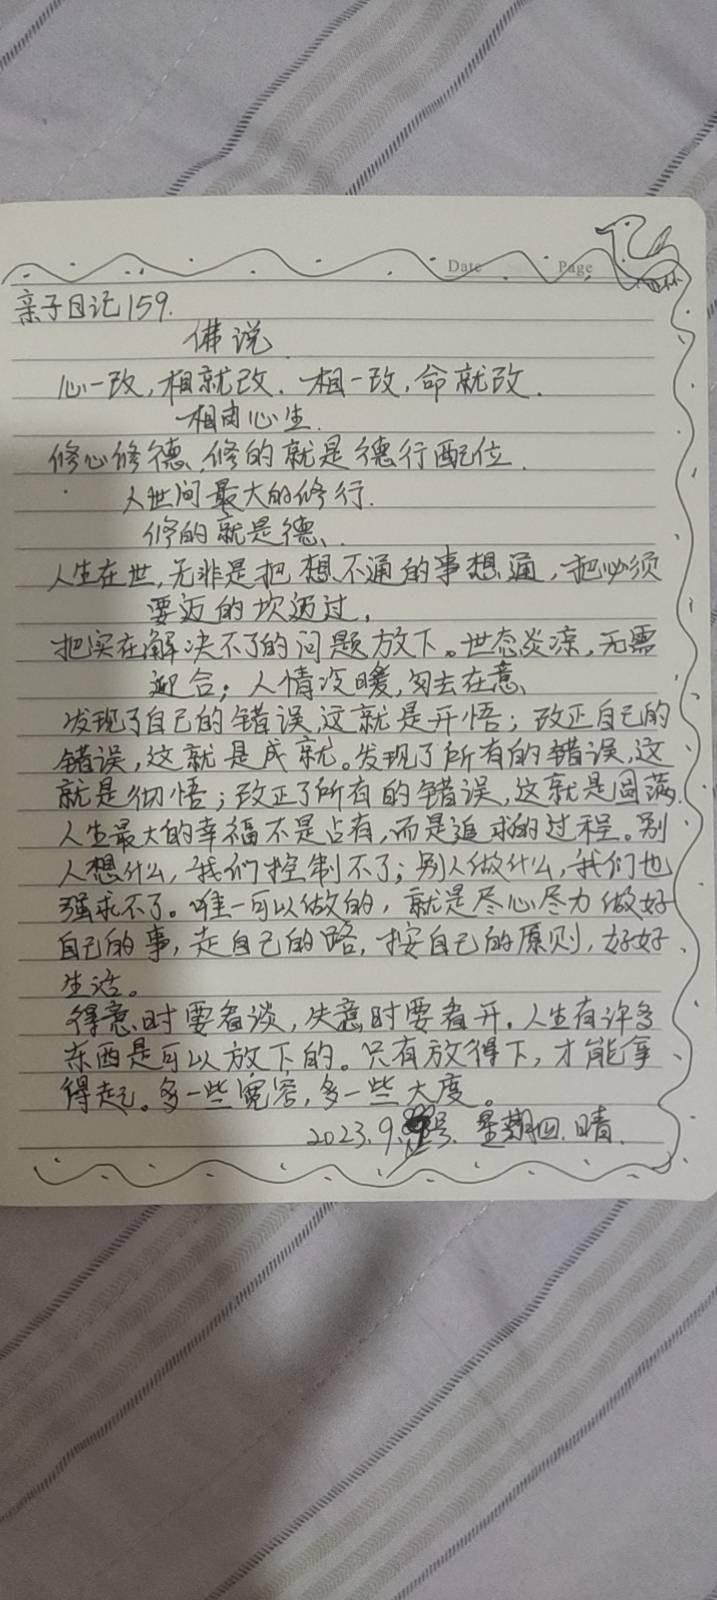 Date Page
亲子日记159.
佛说
心一改,相就改.相一改,命就改.
相由心生.
修心修德,修的就是德行配位.
人世间最大的修行.
修的就是德.
人生在世,无非是把想不通的事想通,把必须
要迈的坎迈过,
把实在解决不了的问题放下。世态炎凉,无需
迎合;人情冷暖,勿去在意
发现了自己的错误,这就是开悟;改正自己的
错误,这就是成就。发现了所有的错误,这
就是彻悟;改正了所有的错误,这就是圆满.
人生最大的幸福不是占有,而是追求的过程。别
人想什么,我们控制不了;别人做什么,我们也
强求不了。唯一可以做的,就是尽心尽力做好
自己的事,走自己的路,按自己的原则,好好
生活。
得意时要看淡,失意时要看开.人生有许多
东西是可以放下的。只有放得下,才能拿
得起。多一些宽容,多一些大度。
2023.9. 号.星期四.晴.